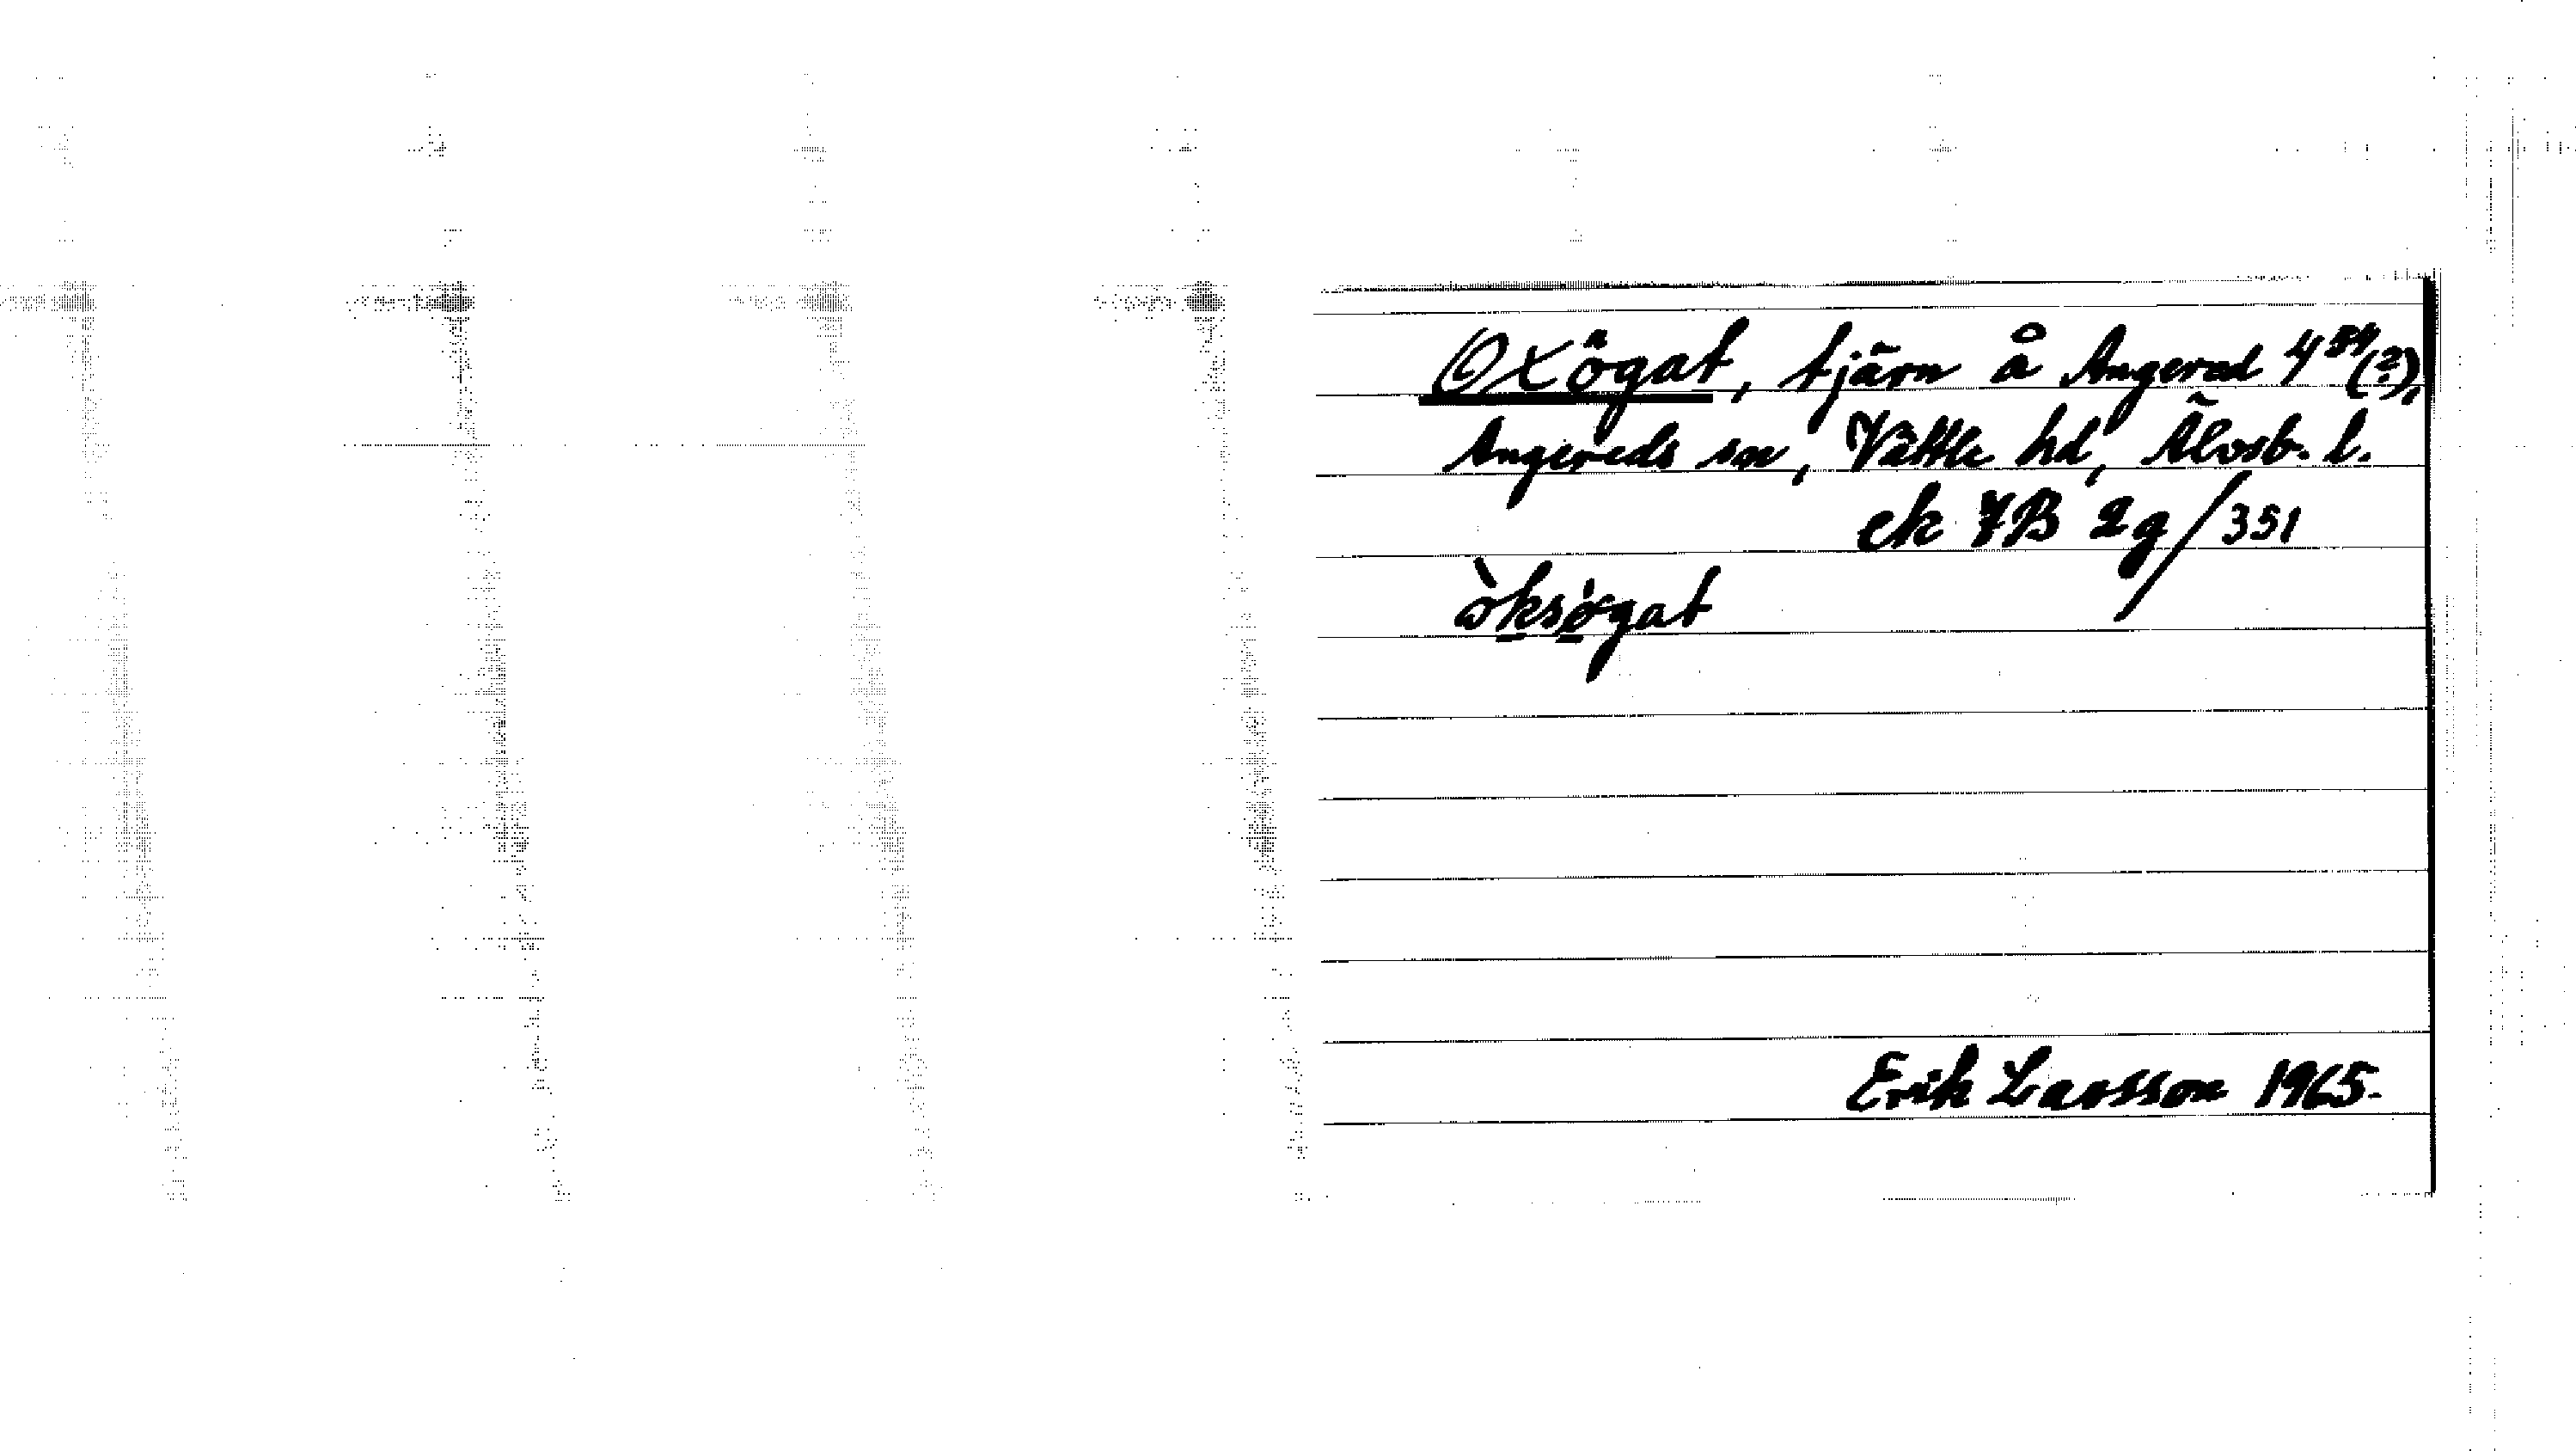 Oxögat, tjärn å Angered 4⁵⁴(?),
Angereds sn, Vättle hd, Älvsb. l.
ek 7B 2g/351
òksögat
Erik Larsson 1965.